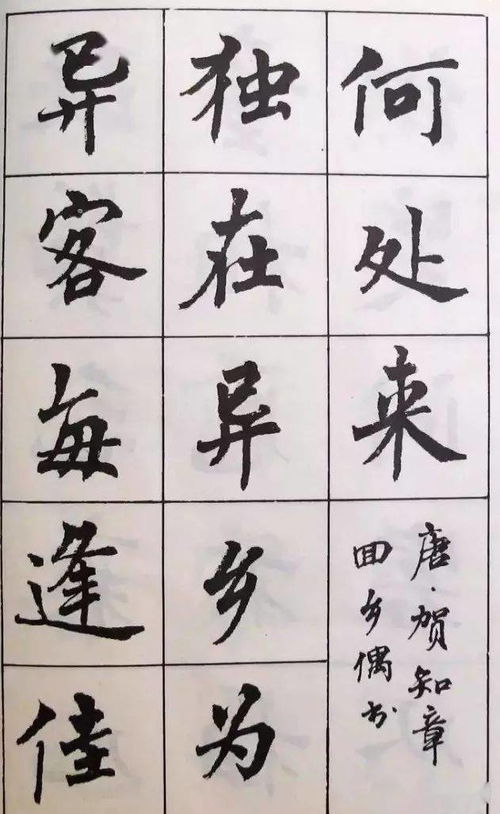 何处来
唐·贺知章
回乡偶书
独在异乡为
异客每逢佳